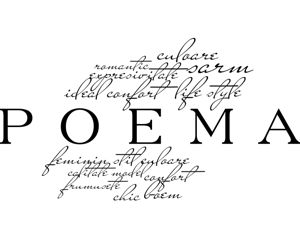 culoare
romantic sarm
expresivitate
ideal confort life style
POEMA
feminin stil culoare
calitate model confort
frumusete
chic boem